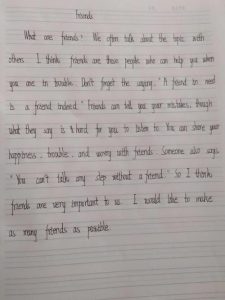 Friends
What are friends? We often talk about the topic with
others. I think friends are those people who can help you when
you are in trouble. Don't forget the saying, "A friend in need
is a friend indeed." Friends can tell you your mistakes, though
what they say is hard for you to listen to. You can share your
happiness, trouble, and worry with friends. Someone also says,
"You can't talk any step without a friend." So I think
friends are very important to us. I would like to make
as many friends as possible.